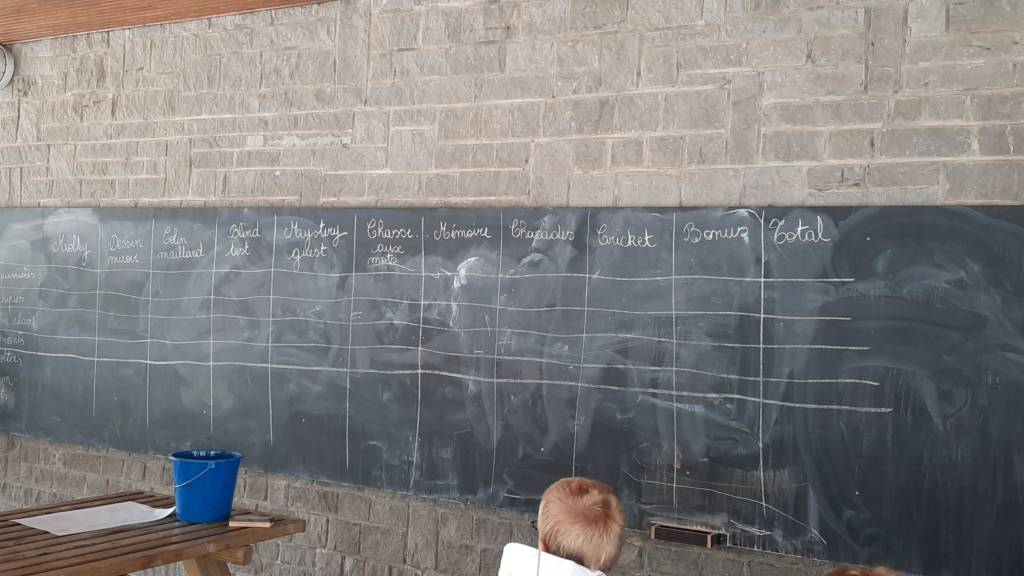 Molky
Dessin
miroir
Colin
maillard
Blind
test
Mystery
guest
Chasse
aux
mots
Mémoire
Charades
Cricket
Bonus
Total